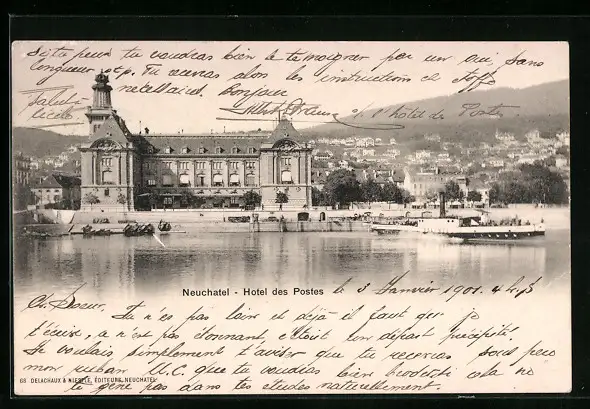 Si tu peux tu voudras bien le témoigner par un oui, sans
longueur etc. Tu recevras alors les instructions et
nécessaires. Bonjour
Neuchatel - Hotel des Postes
le 3 Janvier 1901. 4 h 15
Tu n'es pas loin et déjà il faut que je
t'écrive, n'est pas étonnant, c'était ton départ précipité.
Je voulais simplement t'aviser que tu recevras sous peu
mon ruban U.C. que tu voudras bien si cela ne
te gêne pas dans tes études naturellement.
68 DELACHAUX & NIESTLÉ, ÉDITEURS, NEUCHATEL